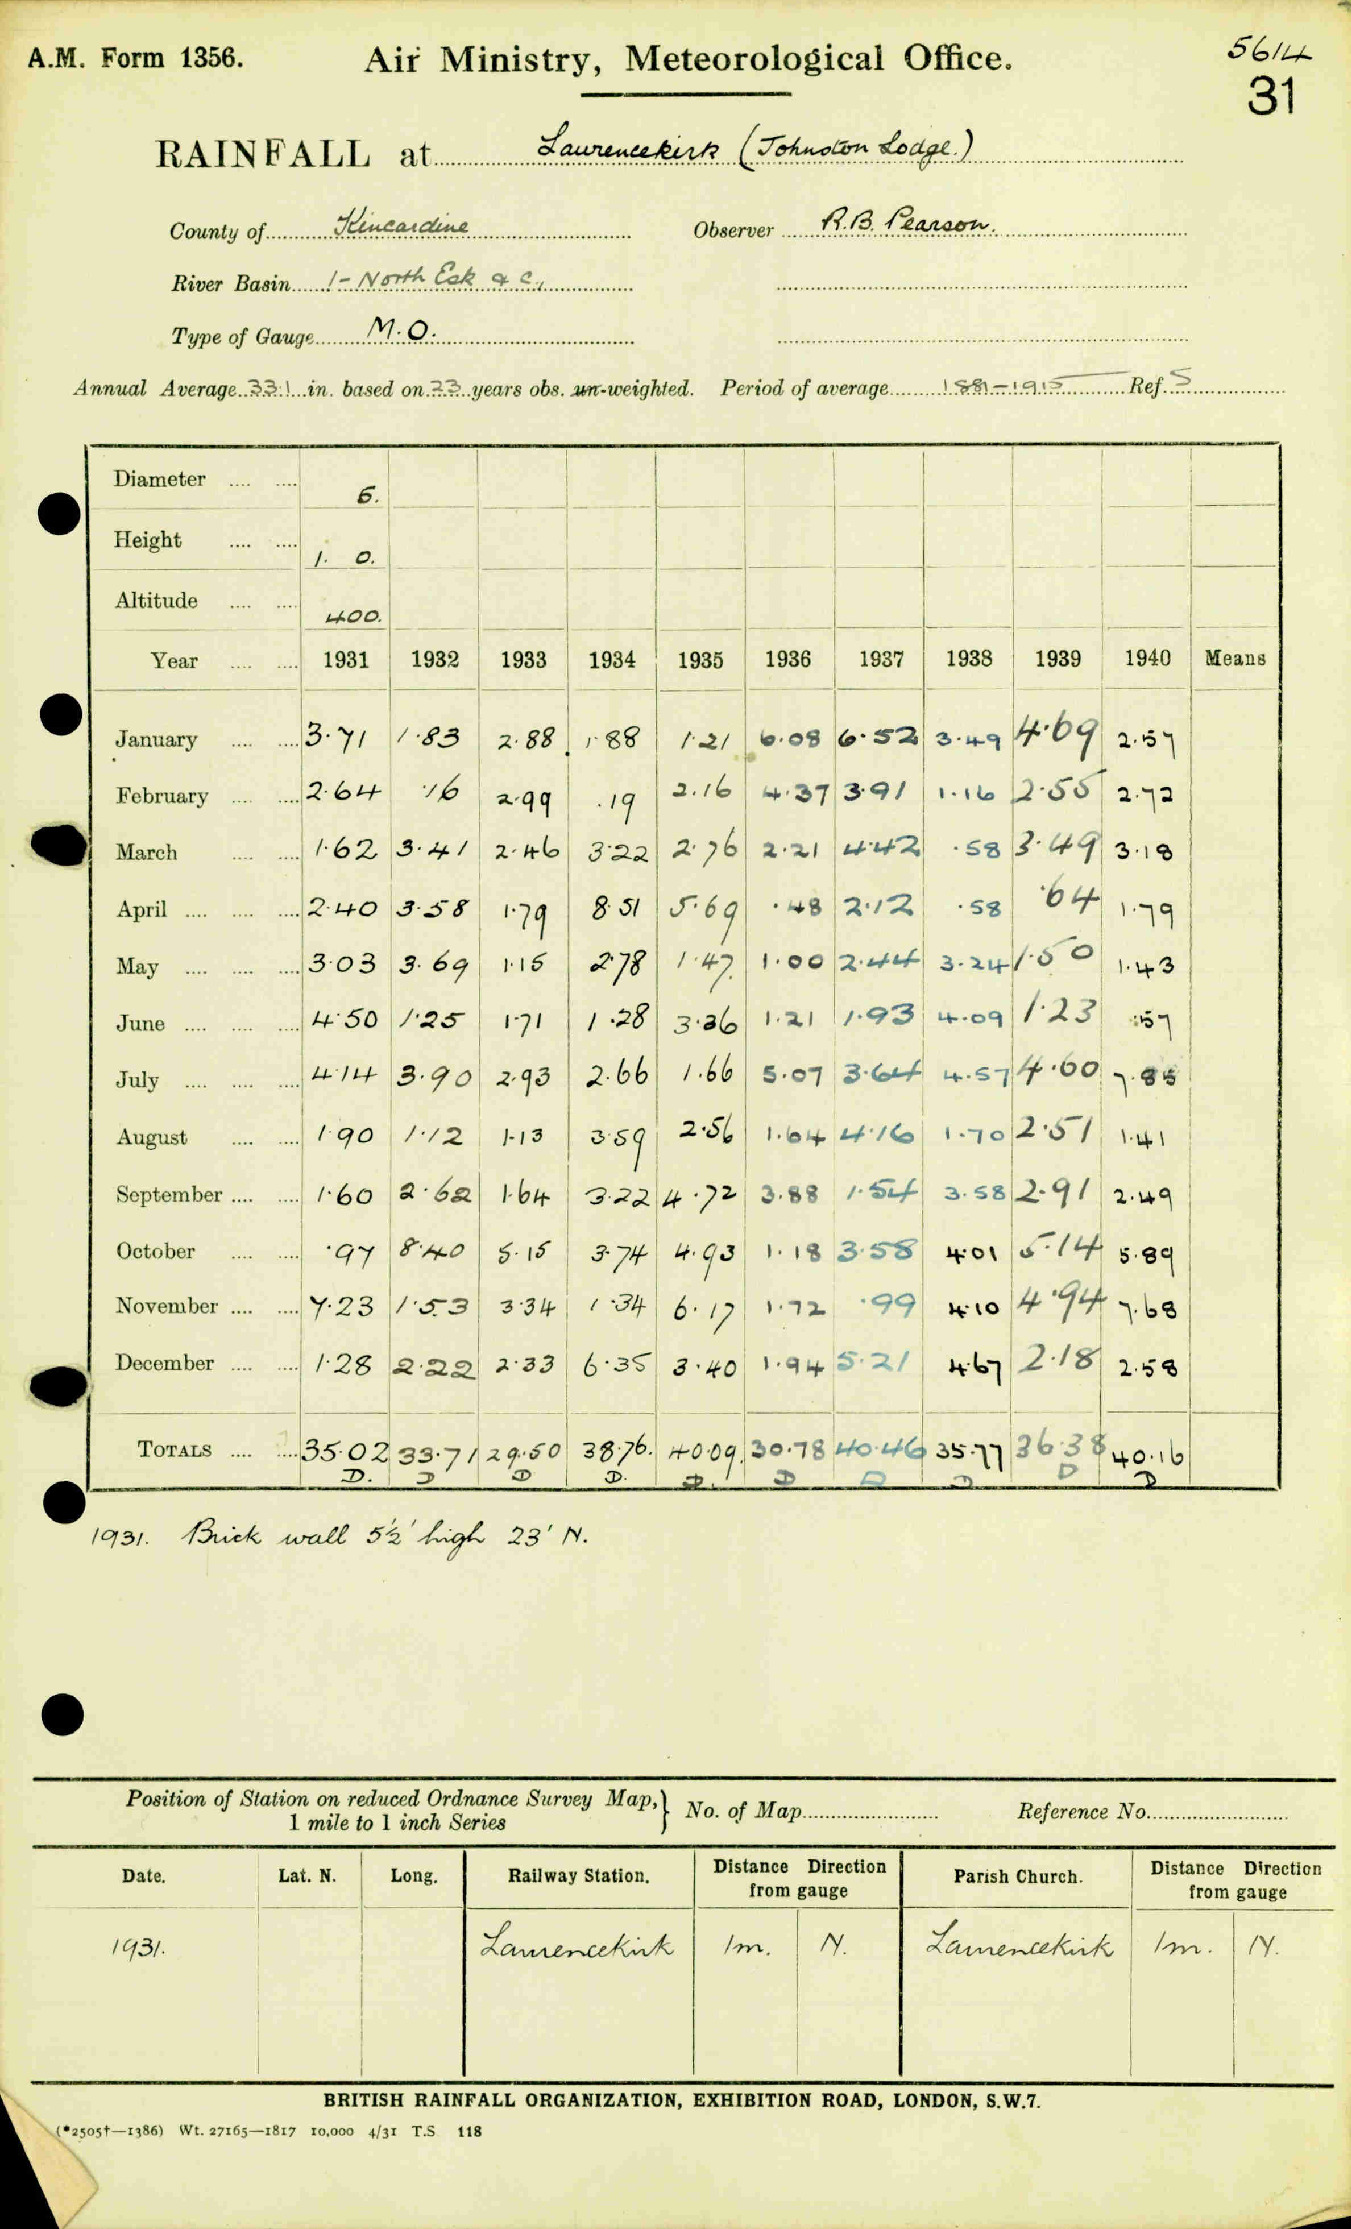 A.M. Form 1356.
Air Ministry, Meteorological Office.
5614
31
RAINFALL at Laurencekirk (Johnston Lodge.)
County of Kincardine Observer R.B. Pearson.
River Basin 1-North Esk & C.,
Type of Gauge M.O.
Annual Average 33.1 in. based on 23 years obs. un-weighted. Period of average 1881-1915 Ref. S
Diameter .... .... 5.
Height .... .... 1. 0.
Altitude .... .... 400.
Year .... .... 1931 1932 1933 1934 1935 1936 1937 1938 1939 1940 Means
January .... .... 3.71 1.83 2.88 1.88 1.21 6.08 6.52 3.49 4.69 2.57
February .... .... 2.64 .16 2.99 .19 2.16 4.37 3.91 1.16 2.55 2.72
March .... .... 1.62 3.41 2.46 3.22 2.76 2.21 4.42 .58 3.49 3.18
April .... .... .... 2.40 3.58 1.79 8.51 5.69 .48 2.12 .58 .64 1.79
May .... .... .... 3.03 3.69 1.15 2.78 1.47 1.00 2.44 3.24 1.50 1.43
June .... .... .... 4.50 1.25 1.71 1.28 3.36 1.21 1.93 4.09 1.23 .57
July .... .... .... 4.14 3.90 2.93 2.66 1.66 5.07 3.64 4.57 4.60 7.85
August .... .... 1.90 1.12 1.13 3.59 2.56 1.64 4.16 1.70 2.51 1.41
September .... .... 1.60 2.62 1.64 3.22 4.72 3.88 1.54 3.58 2.91 2.49
October .... .... .97 8.40 5.15 3.74 4.93 1.18 3.58 4.01 5.14 5.89
November .... .... 7.23 1.53 3.34 1.34 6.17 1.72 .99 4.10 4.94 7.68
December .... .... 1.28 2.22 2.33 6.35 3.40 1.94 5.21 4.67 2.18 2.58
TOTALS .... .... 35.02 33.71 29.50 38.76. 40.09. 30.78 40.46 35.77 36.38 40.16
D. D D D. D. D D D D D
1931. Brick wall 5½' high 23' N.
Position of Station on reduced Ordnance Survey Map,} No. of Map Reference No.
1 mile to 1 inch Series
Date. Lat. N. Long. Railway Station. Distance Direction from gauge Parish Church. Distance Direction from gauge
1931. Laurencekirk 1m. N. Laurencekirk 1m. N.
BRITISH RAINFALL ORGANIZATION, EXHIBITION ROAD, LONDON, S.W.7.
(*2505†—1386) Wt. 27165—1817 10,000 4/31 T.S 118